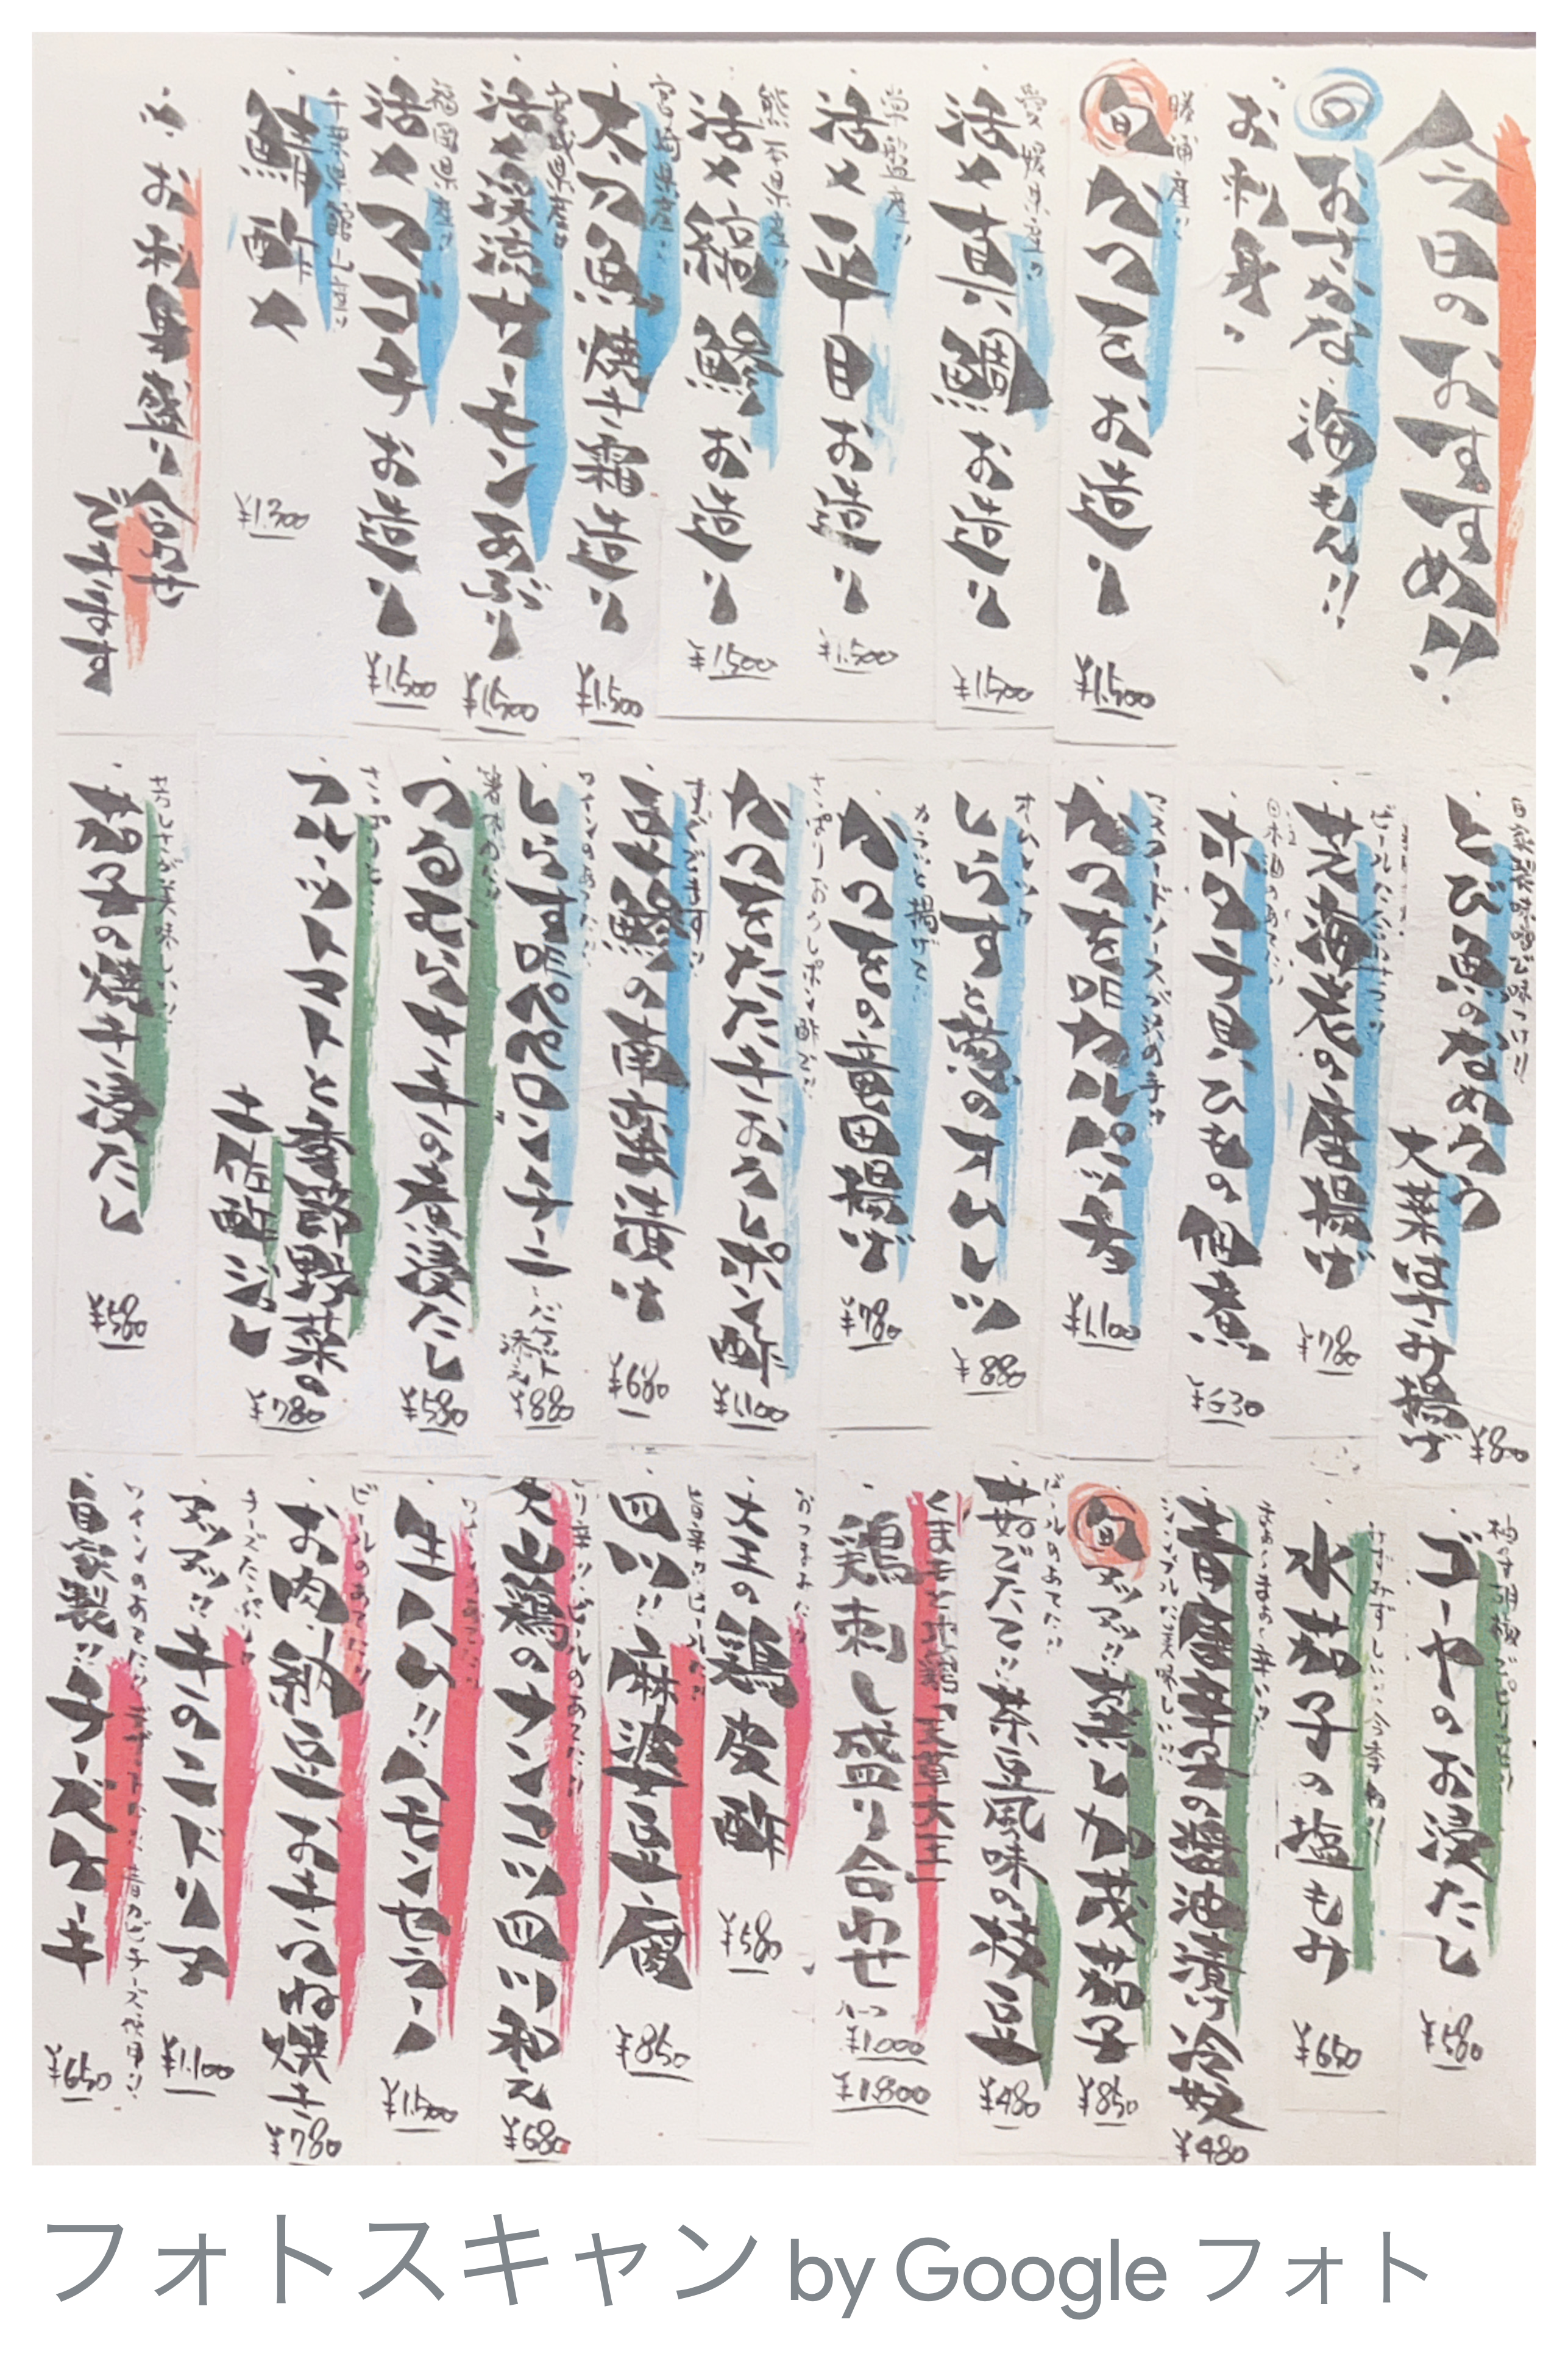 今日のおすすめ!!
旬おさかな 海もん!!
お刺身
勝浦産!!
旬 かつを お造り ¥1,500
愛媛県産!!
活〆真鯛 お造り ¥1,500
活〆平目 お造り ¥1,500
熊本県産!!
活〆縞鯵 お造り ¥1,500
宮崎県産!!
太刀魚 焼き霜造り ¥1,500
宮城県産!!
活〆渓流サーモンあぶり ¥1,500
福岡県産!!
活〆マゴチ お造り ¥1,500
¥1,300
お刺身盛り合わせ
できます
とび魚のなめろう
大葉はさみ揚げ ¥880
芝海老の唐揚げ ¥780
日本酒のあてに!!
ホタテ貝ひもの佃煮 ¥630
かつをユッケ
かつをのカルパッチョ ¥1,100
しらすと葱のオムレツ ¥880
カラッと揚げて!!
かつをの竜田揚げ ¥780
さっぱりおろしポン酢で!!
かつをたたきおろしポン酢 ¥1,100
まめ鯵の南蛮漬け ¥680
しらすペペロンチーニ バゲット添え ¥880
つるむらさきの煮浸たし ¥580
フルーツトマトと夏野菜の
土佐酢ジュレ ¥780
茄子の焼き浸たし ¥580
柚子胡椒でピリッと!!
ゴーヤのお浸たし ¥580
みずみずしい!!今季初!!
水茄子の塩もみ ¥650
シンプルに美味しい!!
青唐辛子の醤油漬け冷奴 ¥480
旬 アツアツ!! 蒸し加茂茄子 ¥850
ビールのあてに!!
茹でたて!! 茶豆風味の枝豆 ¥480
くまもと地鶏「天草大王」
鶏刺し盛り合わせ ハーフ ¥1,000
¥1,800
おつまみに!!
大王の鶏皮酢 ¥580
四川!! 麻婆豆腐 ¥850
ピリ辛!!ビールのあてに!!
大山鶏のナンコツ四川和え ¥680
生ハム!! ハモンセラーノ ¥1,500
ビールのあてに!!
お肉納豆おきつね焼き ¥780
チーズたっぷり!!
アツアツ!! 牛のコンドリア ¥1,100
自家製!! チーズケーキ ¥650
フォトスキャン by Google フォト